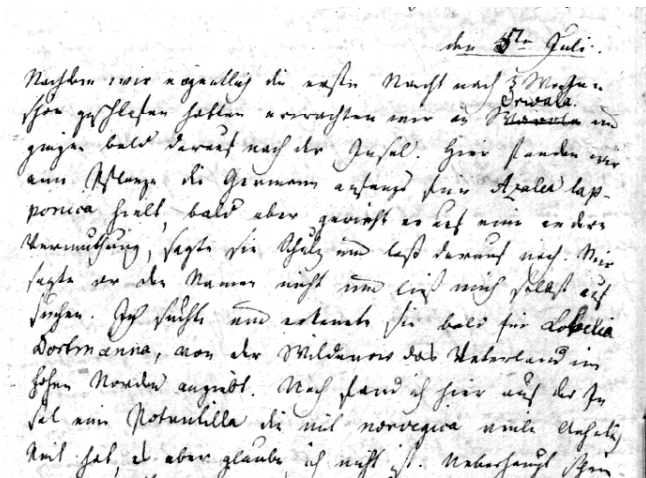 den 5ten Juli.
Nachdem wir eigentlich die erste Nacht nach 3 Wochen
schön geschlafen hatten erwachten wir in Orwala und
gingen bald darauf nach der Insel. Hier fanden wir
eine Pflanze die Germann anfangs für Azalea lap-
ponica hielt, bald aber gerieth er auf eine andere
Vermuthung, sagte sie Schulz und las darauf nach. Mir
sagte er den Namen nicht und ließ mich selbst auf
suchen. Ich suchte und erkannte sie bald für Lobelia
Dortmanna, von der Wildenow das Vaterland im
hohen Norden angiebt. Noch fand ich hier auf der In
sel eine Potentilla die mit norvegica viele Aehnlich
keit hat, es aber glaube ich nicht ist. Ueberhaupt schein